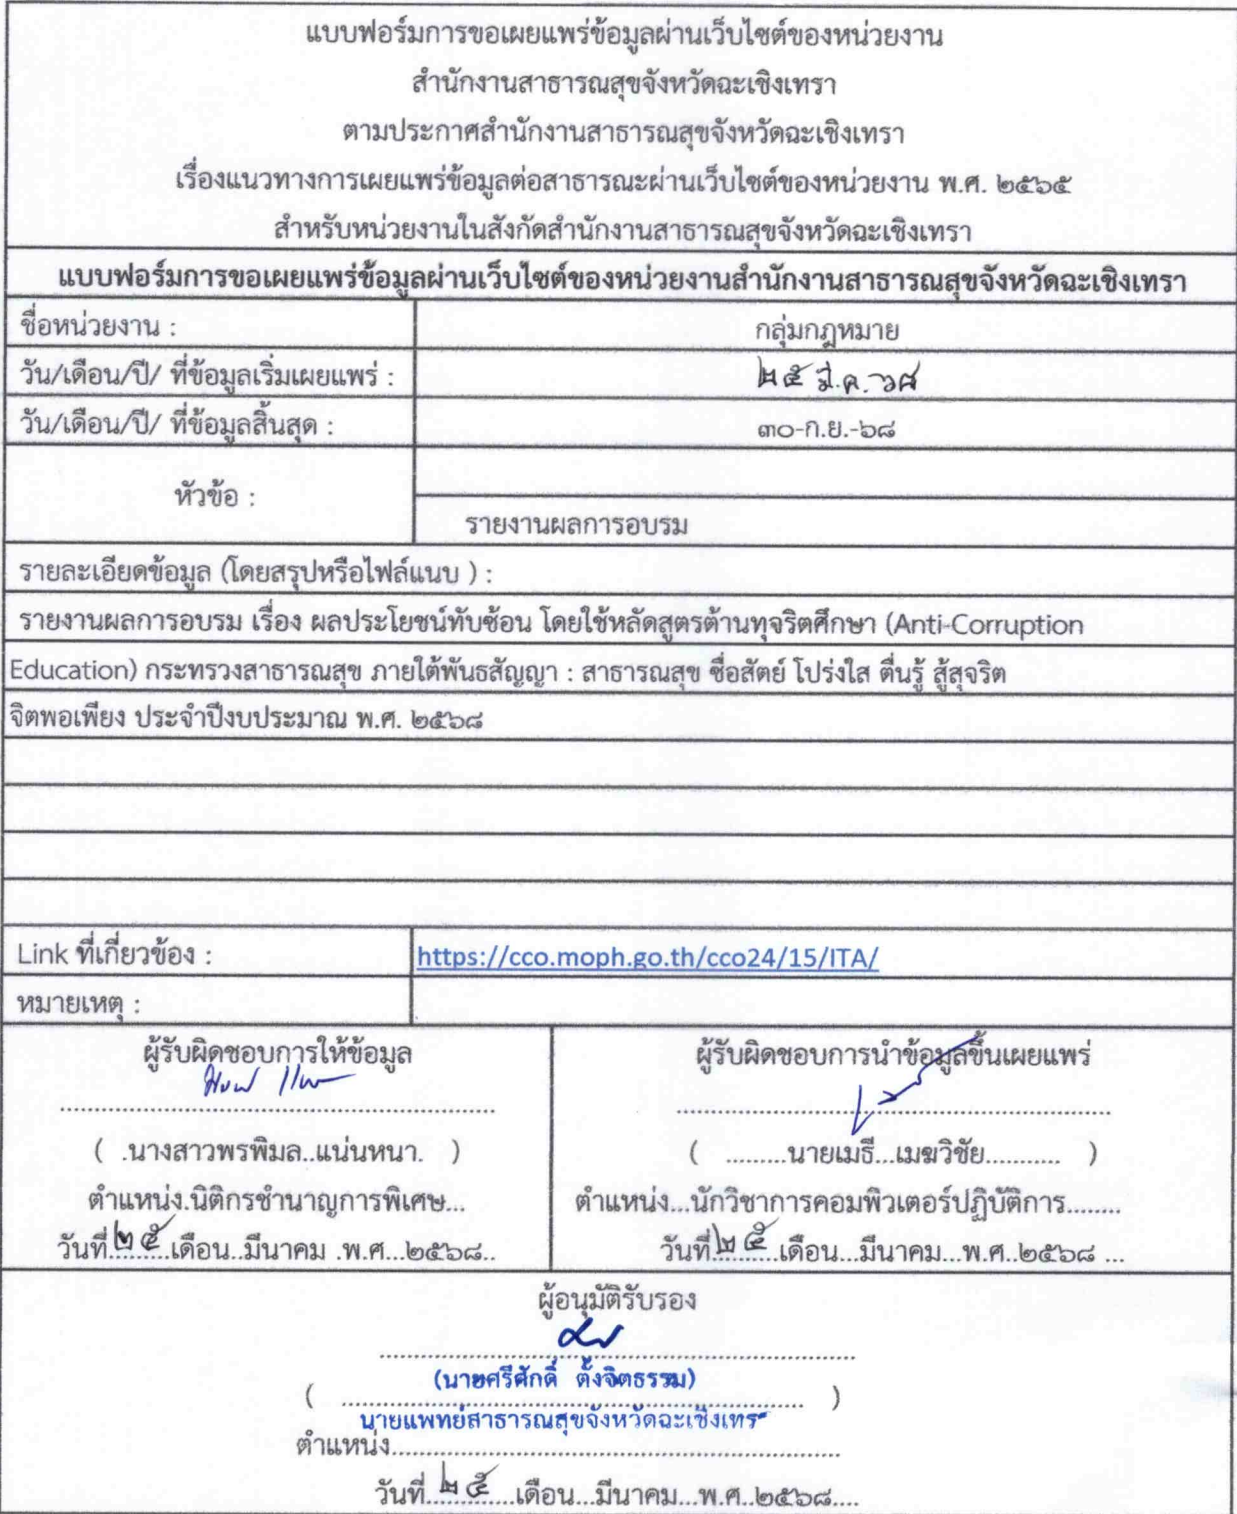 แบบฟอร์มการขอเผยแพร่ข้อมูลผ่านเว็บไซต์ของหน่วยงาน
สำนักงานสาธารณสุขจังหวัดฉะเชิงเทรา
ตามประกาศสำนักงานสาธารณสุขจังหวัดฉะเชิงเทรา
เรื่องแนวทางการเผยแพร่ข้อมูลต่อสาธารณะผ่านเว็บไซต์ของหน่วยงาน พ.ศ. ๒๕๖๕
สำหรับหน่วยงานในสังกัดสำนักงานสาธารณสุขจังหวัดฉะเชิงเทรา
แบบฟอร์มการขอเผยแพร่ข้อมูลผ่านเว็บไซต์ของหน่วยงานสำนักงานสาธารณสุขจังหวัดฉะเชิงเทรา
ชื่อหน่วยงาน : กลุ่มกฎหมาย
วัน/เดือน/ปี/ ที่ข้อมูลเริ่มเผยแพร่ : ๒๕ มี.ค. ๖๘
วัน/เดือน/ปี/ ที่ข้อมูลสิ้นสุด : ๓๐-ก.ย.-๖๘
หัวข้อ :
รายงานผลการอบรม
รายละเอียดข้อมูล (โดยสรุปหรือไฟล์แนบ ) :
รายงานผลการอบรม เรื่อง ผลประโยชน์ทับซ้อน โดยใช้หลัดสูตรต้านทุจริตศึกษา (Anti-Corruption
Education) กระทรวงสาธารณสุข ภายใต้พันธสัญญา : สาธารณสุข ชื่อสัตย์ โปร่งใส ตื่นรู้ สู้สุจริต
จิตพอเพียง ประจำปีงบประมาณ พ.ศ. ๒๕๖๘
Link ที่เกี่ยวข้อง : https://cco.moph.go.th/cco24/15/ITA/
หมายเหตุ :
ผู้รับผิดชอบการให้ข้อมูล
( .นางสาวพรพิมล..แน่นหนา. )
ตำแหน่ง.นิติกรชำนาญการพิเศษ...
วันที่ ๒๕ เดือน..มีนาคม .พ.ศ...๒๕๖๘..
ผู้รับผิดชอบการนำข้อมูลขึ้นเผยแพร่
( .........นายเมธี...เมฆวิชัย........... )
ตำแหน่ง...นักวิชาการคอมพิวเตอร์ปฏิบัติการ........
วันที่ ๒๕ เดือน...มีนาคม...พ.ศ..๒๕๖๘ ...
ผู้อนุมัติรับรอง
(นายศรีศักดิ์ ตั้งจิตธรรม)
นายแพทย์สาธารณสุขจังหวัดฉะเชิงเทรา
ตำแหน่ง
วันที่ ๒๕ เดือน...มีนาคม...พ.ศ..๒๕๖๘....